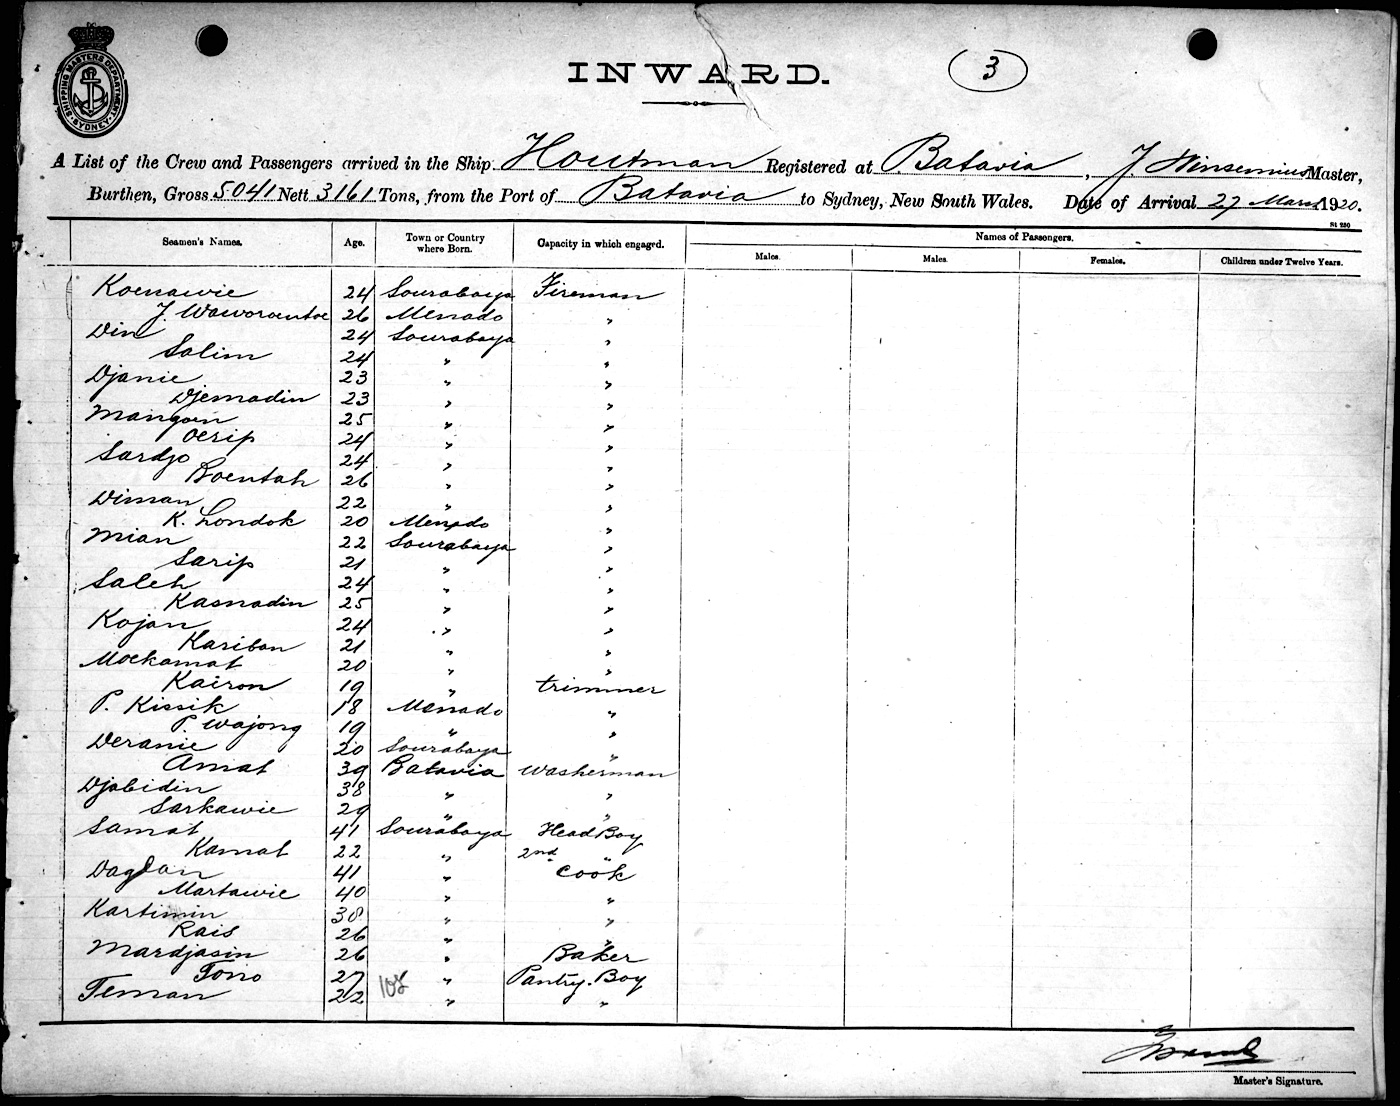 SHIPPING MASTERS DEPARTMENT
SYDNEY
INWARD.
3
A List of the Crew and Passengers arrived in the Ship Houtman Registered at Batavia, J. Hinsemius Master,
Burthen, Gross 5041 Nett 3161 Tons, from the Port of Batavia to Sydney, New South Wales. Date of Arrival 27 March 1920.
St 230
Seamen's Names. Age. Town or Country where Born. Capacity in which engaged. Names of Passengers.
Males. Males. Females. Children under Twelve Years.
Koenawie 24 Sourabaya Fireman
J. Waworoentoe 26 Menado "
Din 24 Sourabaya "
Salim 24 " "
Djanie 23 " "
Djemadin 23 " "
Mangoen 25 " "
Oerip 24 " "
Sardjo 24 " "
Boentah 26 " "
Diman 22 " "
K. Londok 20 Menado "
Mian 22 Sourabaya "
Sarip 21 " "
Saleh 24 " "
Kasnadin 25 " "
Kojan 24 " "
Kariban 21 " "
Moekamat 20 " "
Kairon 19 " trimmer
P. Kissik 18 Menado "
P. Wajong 19 " "
Deranie 20 Sourabaya "
Amat 39 Batavia Washerman
Djabidin 38 " "
Sarkawie 29 " "
Samat 41 Sourabaya Head Boy
Kamat 22 " 2nd "
Dagdan 41 " Cook
Martawie 40 " "
Kartimin 38 " "
Rais 26 " "
Mardjasin 26 " Baker
Tono 27 " Pantry. Boy
Teman 22 108 " "
Master's Signature.